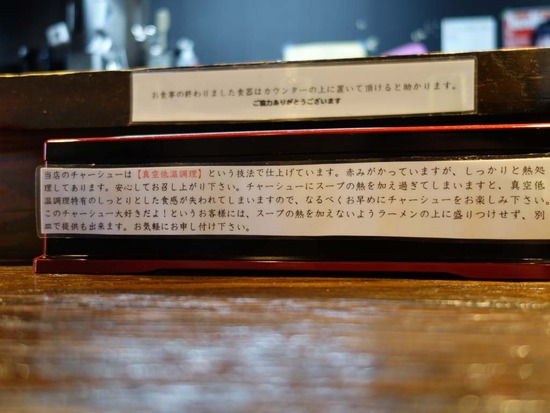 お食事の終わりました食器はカウンターの上に置いて頂けると助かります。
ご協力ありがとうございます
当店のチャーシューは【真空低温調理】という技法で仕上げています。赤みがかっていますが、しっかりと熱処
理してあります。安心してお召し上がり下さい。チャーシューにスープの熱を加え過ぎてしまいますと、真空低
温調理特有のしっとりとした食感が失われてしまいますので、なるべくお早めにチャーシューをお楽しみ下さい。
このチャーシュー大好きだよ！というお客様には、スープの熱を加えないようラーメンの上に盛りつけせず、別
皿で提供も出来ます。お気軽にお申し付け下さい。